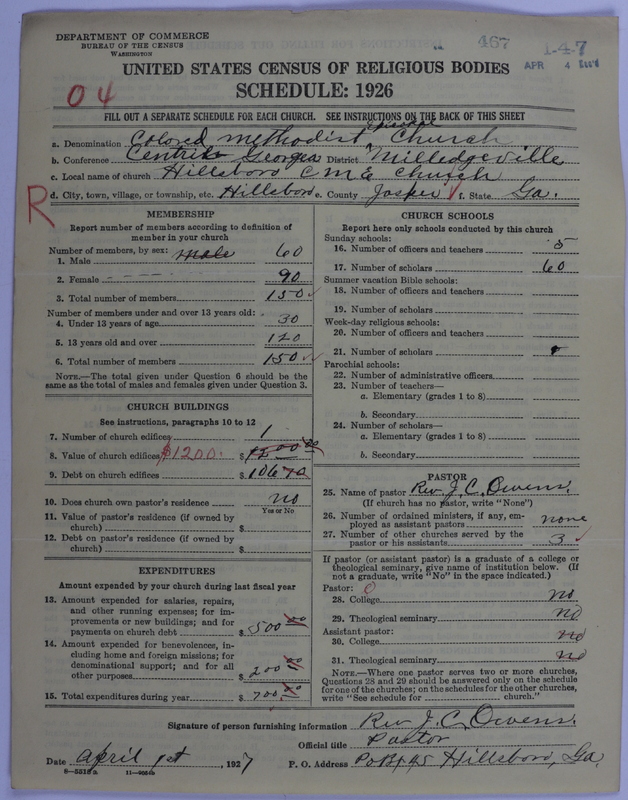 DEPARTMENT OF COMMERCE
BUREAU OF THE CENSUS
WASHINGTON
467
1-4-7
APR 4
UNITED STATES CENSUS OF RELIGIOUS BODIES
SCHEDULE: 1926
04
FILL OUT A SEPARATE SCHEDULE FOR EACH CHURCH. SEE INSTRUCTIONS ON THE BACK OF THIS SHEET
a. Denomination Colored methodist Episcopal Church
b. Conference Georgia District Milledgeville
c. Local name of church Hillsboro C M E Church
R
d. City, town, village, or township, etc. Hillsboro e. County Jasper f. State Ga.
MEMBERSHIP
Report number of members according to definition of
member in your church
Number of members, by sex: male
1. Male 60
2. Female 90
3. Total number of members 150
Number of members under and over 13 years old:
4. Under 13 years of age 30
5. 13 years old and over 120
6. Total number of members 150
NOTE.—The total given under Question 6 should be
the same as the total of males and females given under Question 3.
CHURCH BUILDINGS
See instructions, paragraphs 10 to 12
7. Number of church edifices 1
8. Value of church edifices $1200. $ 1200 00
9. Debt on church edifices $ 106 70
10. Does church own pastor's residence no
Yes or No
11. Value of pastor's residence (if owned by
church) $
12. Debt on pastor's residence (if owned by
church) $
EXPENDITURES
Amount expended by your church during last fiscal year
13. Amount expended for salaries, repairs,
and other running expenses; for im-
provements or new buildings; and for
payments on church debt $ 500 00
14. Amount expended for benevolences, in-
cluding home and foreign missions; for
denominational support; and for all
other purposes $ 200 00
15. Total expenditures during year $ 700 00
CHURCH SCHOOLS
Report here only schools conducted by this church
Sunday schools:
16. Number of officers and teachers 5
17. Number of scholars 60
Summer vacation Bible schools:
18. Number of officers and teachers
19. Number of scholars
Week-day religious schools:
20. Number of officers and teachers
21. Number of scholars
Parochial schools:
22. Number of administrative officers
23. Number of teachers—
a. Elementary (grades 1 to 8)
b. Secondary
24. Number of scholars—
a. Elementary (grades 1 to 8)
b. Secondary
PASTOR
25. Name of pastor Rev. J. C. Owens.
(If church has no pastor, write "None")
26. Number of ordained ministers, if any, em-
ployed as assistant pastors none
27. Number of other churches served by the
pastor or his assistants 3
If pastor (or assistant pastor) is a graduate of a college or
theological seminary, give name of institution below. (If
not a graduate, write "No" in the space indicated.)
Pastor: 0
28. College no
29. Theological seminary no
Assistant pastor:
30. College no
31. Theological seminary no
NOTE.—Where one pastor serves two or more churches,
Questions 28 and 29 should be answered only on the schedule
for one of the churches; on the schedules for the other churches,
write "See schedule for church."
Signature of person furnishing information Rev. J. C. Owens.
Official title Pastor
Date april 1st, 1927
P. O. Address Po Bx 45 Hillsboro, Ga.